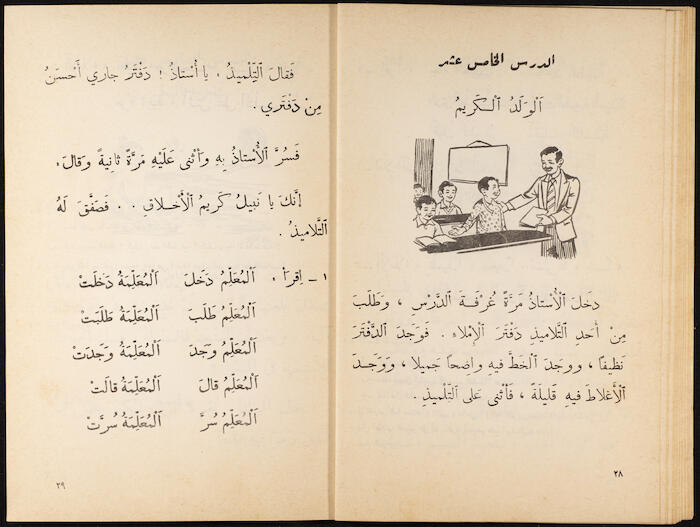 الدرس الخامس عشر
اَلْوَلَدُ اَلْكَرِيمُ
دَخَلَ اَلْأُسْتاذُ مَرَّةً غُرْفَةَ الدَّرْسِ ، وَطَلَبَ
مِنْ أَحَدِ التَّلاميذِ دَفْتَرَ الْإِمْلاءِ . فَوَجَدَ الدَّفْتَرَ
نَظيفاً ، ووجَدَ اَلْخَطَّ فيهِ واضِحاً جَميلا ، وَوَجَدَ
اَلْأَغْلاطَ فيهِ قَليلَةً ، فَأَثْنى عَلى التِّلْميذِ .
٢٨
فَقالَ اَلتِّلْميذُ . يا أُسْتاذُ ! دَفْتَرُ جاري أَحْسَنُ
مِنْ دَفْتَري .
فَسُرَّ اَلْأُسْتاذُ بِهِ وأَثْنى عَلَيْهِ مَرَّةً ثانِيةً وَقالَ .
إنَّكَ يا نَبيلُ كَريمُ اَلْأَخْلاقِ . . فَصَفَّقَ لَهُ
التَّلاميذُ .
١ - اِقرأ . اَلْمُعَلِّمُ دَخَلَ اَلْمُعَلِّمَةُ دَخَلَتْ
اَلْمُعَلِّمُ طَلَبَ اَلْمُعَلِّمَةُ طَلَبَتْ
اَلْمُعَلِّمُ وَجَدَ اَلْمُعَلِّمَةُ وَجَدَتْ
اَلْمُعَلِّمُ قالَ اَلْمُعَلِّمَةُ قالَتْ
اَلْمُعَلِّمُ سُرَّ اَلْمُعَلِّمَةُ سُرَّتْ
٢٩